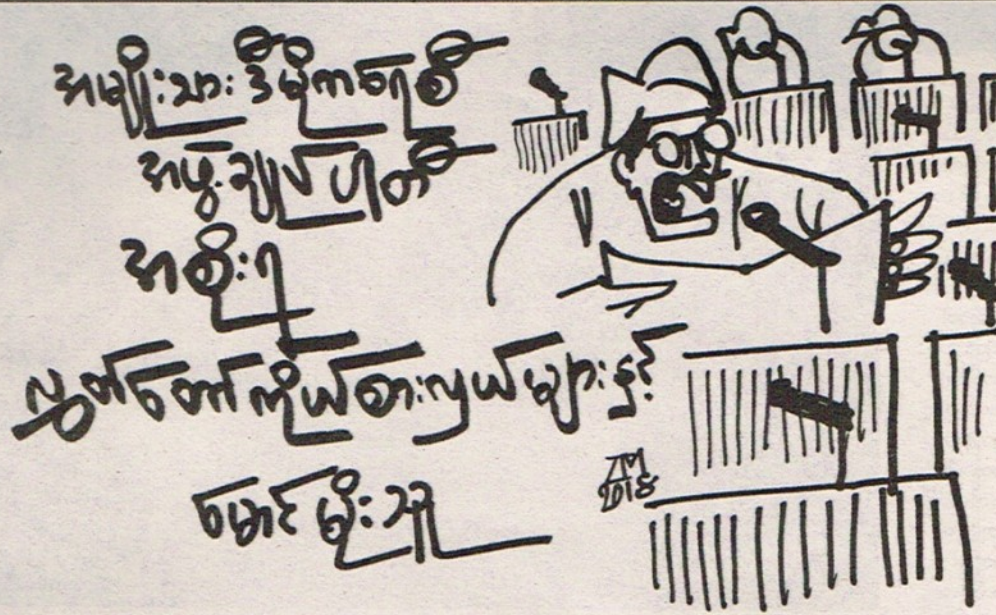 အမျိုးသား ဒီမိုကရေစီ
အဖွဲ့ချုပ်ပါတီ
အစိုးရ
လွှတ်တော်ကိုယ်စားလှယ်များနှင့်
မောင်မိုးသူ
2018